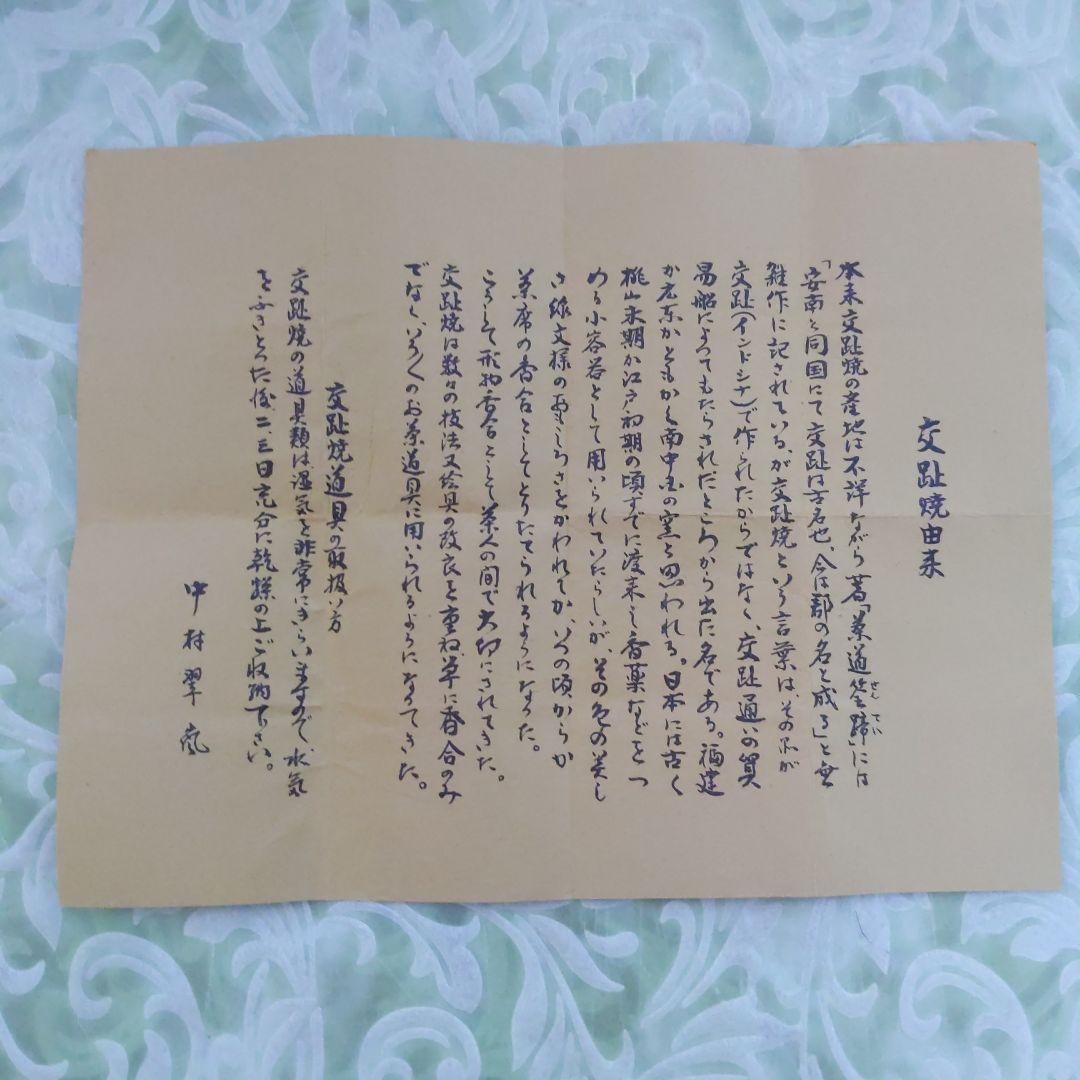 交趾焼由来
本来交趾焼の産地は不詳ながら著「茶道筌蹄」には
ぜんてい
「安南と同国にて交趾は古名也、今は郡の名と成る」と無
雑作に記されている、が交趾焼という言葉は、その品が
交趾(インドシナ)で作られたからではなく、交趾通いの貿
易船によつてもたらされたところから出た名である。福建
か広東かともかく南中国の窯と思われる。日本には古く
桃山末期か江戸初期の頃すでに渡来し香薬などをつ
める小容器として用いられていたらしいが、その色の美し
さ線文様のおもしろさをかわれてか、いつの頃からか
茶席の香合としてとりたてられるようになつた。
こうして形物香合として茶人の間で大切にされてきた。
交趾焼は数々の技法又絵具の改良を重ね、単に香合のみ
でなく、いろ〱のお茶道具に用いられるようになつてきた。
交趾焼道具の取扱い方
交趾焼の道具類は湿気を非常にきらいますので、水気
をふきとつた後二、三日充分に乾燥の上ご収納下さい。
中村翠嵐